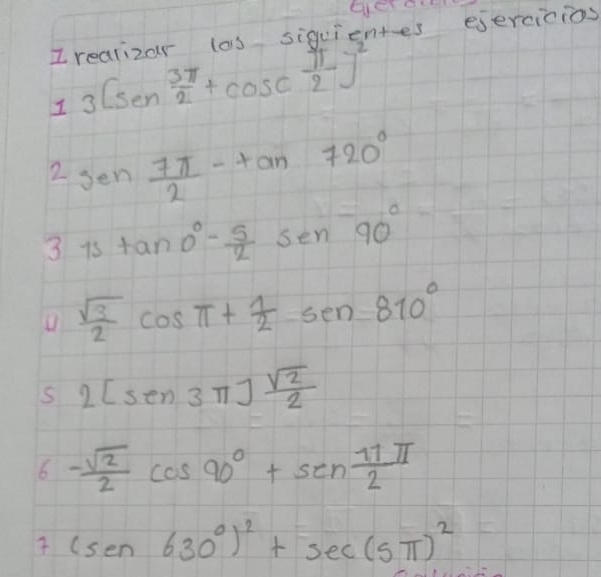 I realizar los siguientes ejercicios
1 3[sen 3π/2 + cosc π/2]²
2 sen 7π/2 - tan 720°
3 15 tan 0° - 5/2 sen 90°
4 √3/2 cos π + 1/2 sen 810°
5 2[sen 3π] √2/2
6 -√2/2 cos 90° + sen 11π/2
7 (sen 630°)² + sec(5π)²